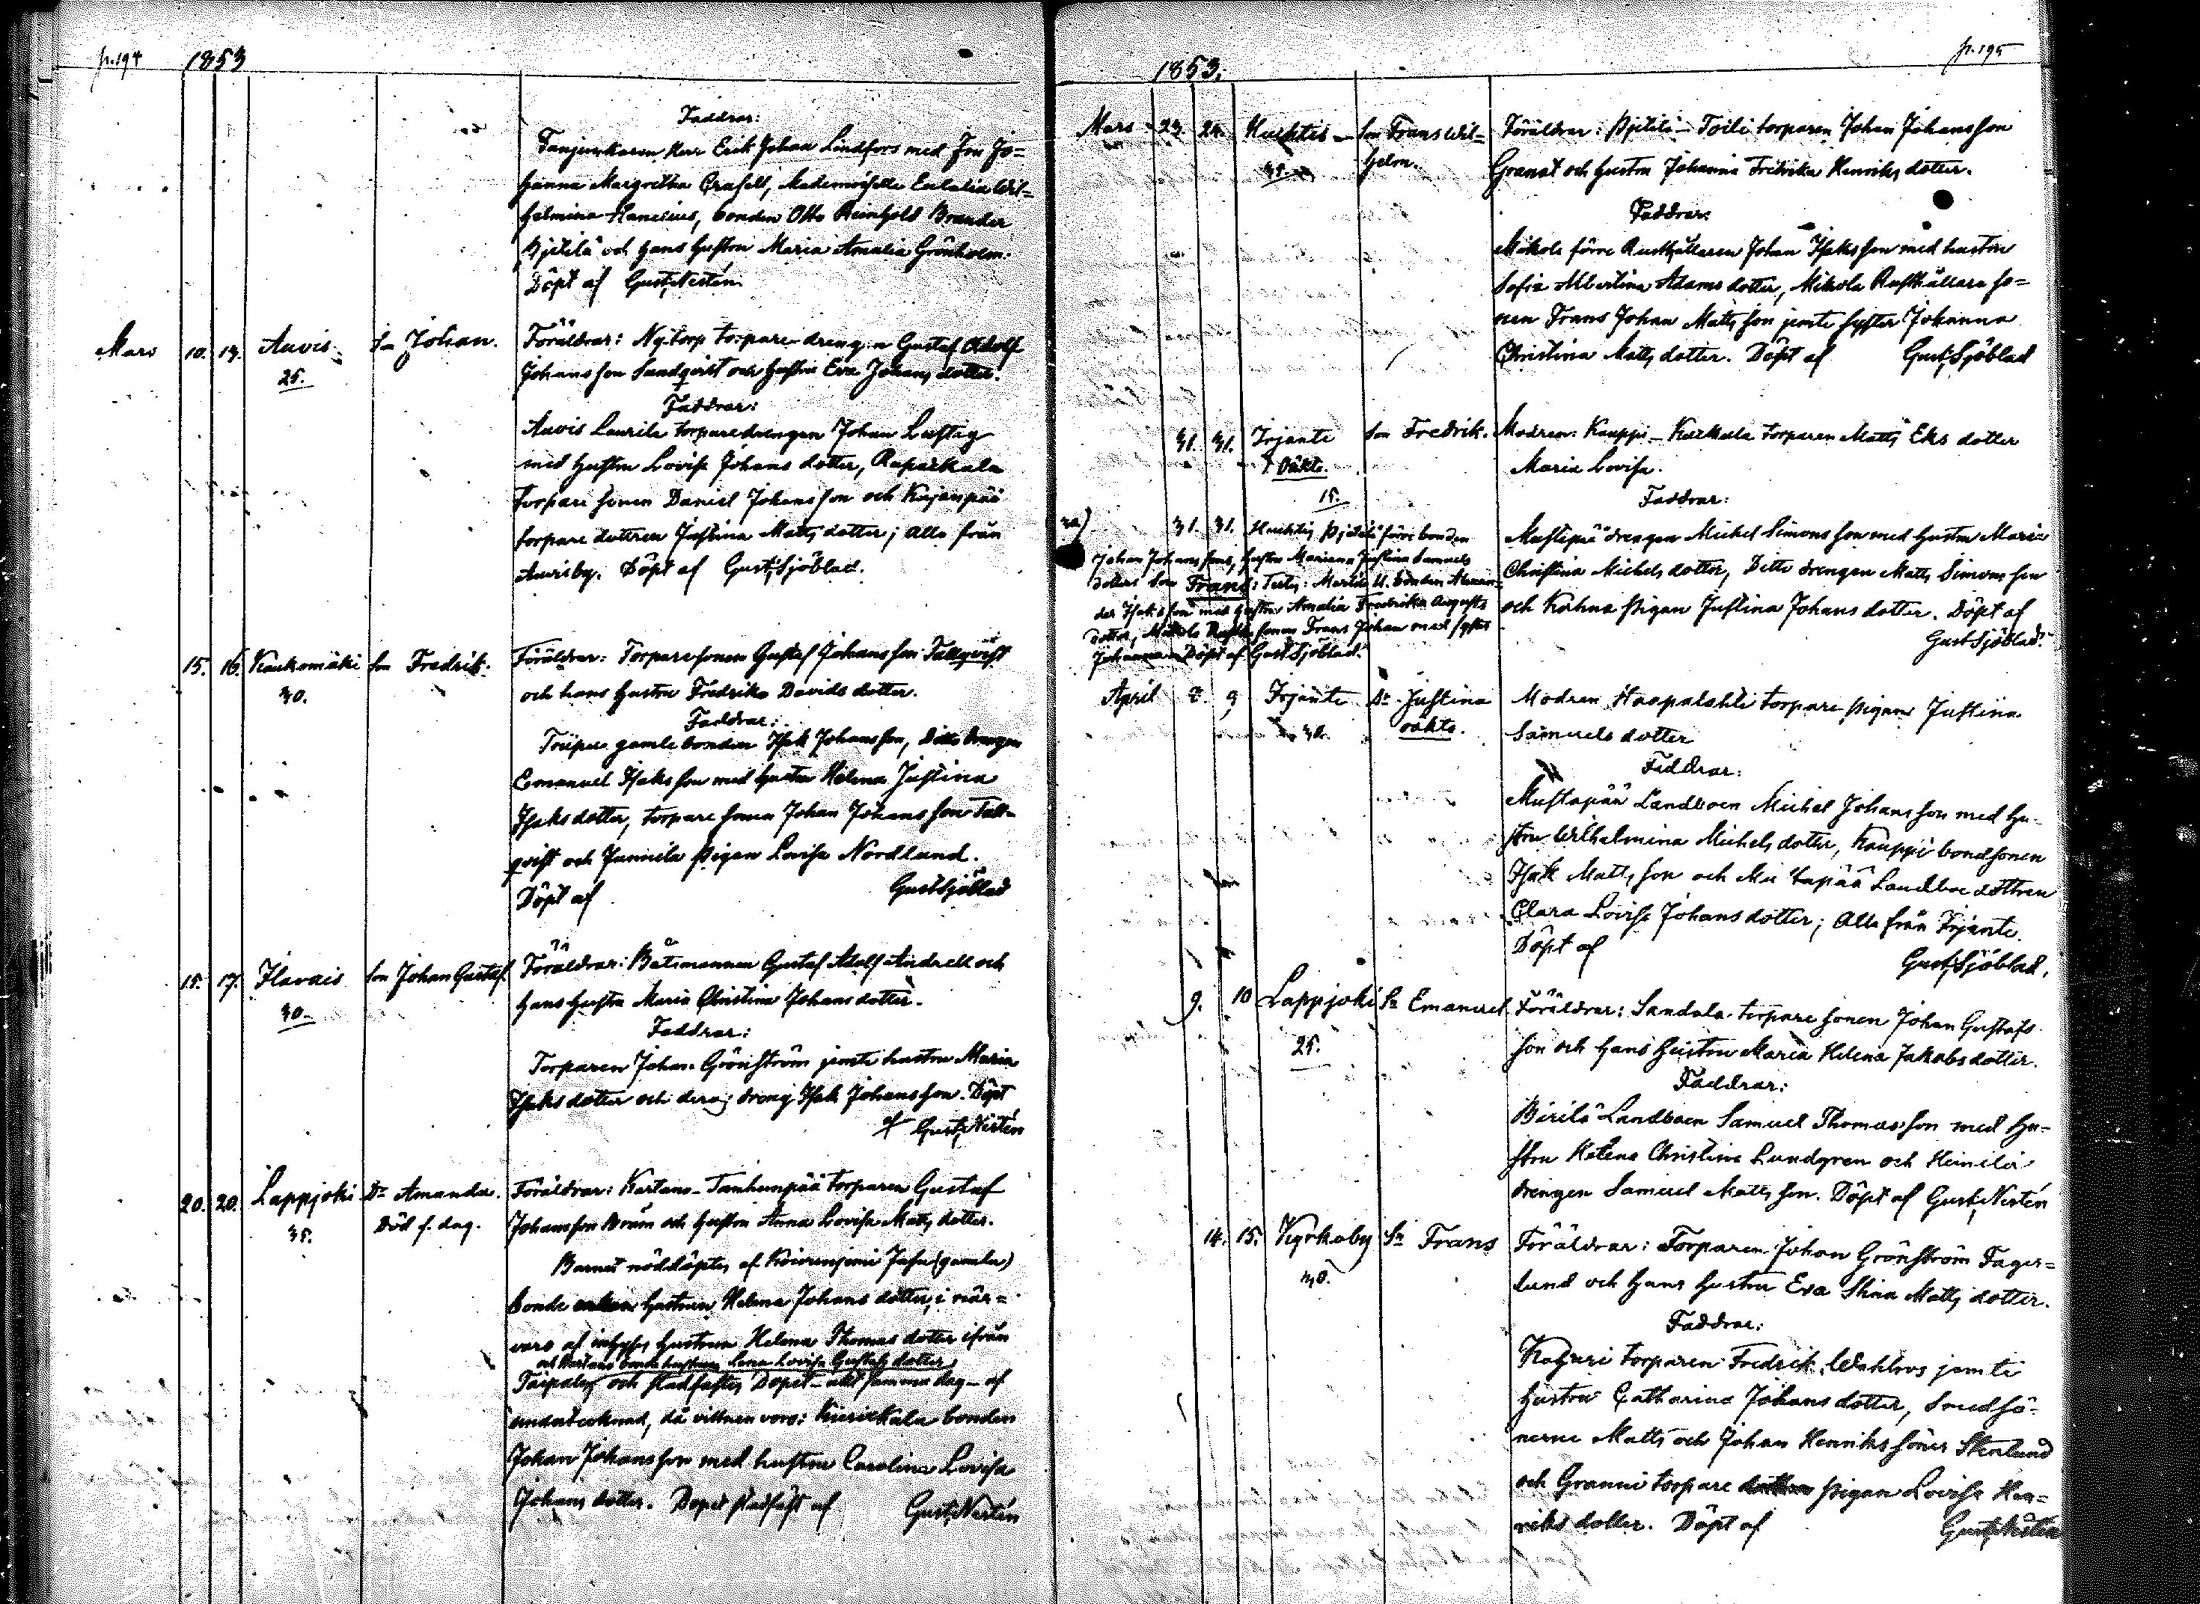 p. 194
1853
Faddrar:
Fanjunkaren Herr Erik Johan Lindfors med Fru Jo=
hanna Margretha Grasell, Mademoiselle Eulalia Wil=
helmina, bonden Otto Reinhold Brander
Pjetilä och hans hustru Maria Amalia Grönholm.
Döpt af Gust. Nestén
Mars 10. 13. Auvis. Sn Johan. Föräldrar: Nytorp torpare drengen Gustaf Adolf
25. Johansson Sandqvist och hustru Eva Johans dotter.
Faddrar:
Auvis Laurila torparedrengen Johan Lustig
med hustru Lovisa Johans dotter, Raparkala
torpare sonen Daniel Johansson och Kujanpää
torpare dottren Justina Matts dotter; Alla från
Auvisby. Döpt af Gust. Sjöblad.
15. 16. Kaukomäki Son Fredrik. Föräldrar: Torparesonen Gustaf Johansson Tallqvist
30. och hans hustru Fredrika Davids dotter.
Faddrar:
gamle bonden Isak Johansson, Ditto drengen
Emanuel Isaksson med hustru Helena Justina
Isaks dotter, torpare sonen Johan Johansson Tall-
qvist och Junnila pigan Lovisa Nordlund.
Döpt af Gust. Sjöblad
15. 17. Ilavais Son Johan Gustaf. Föräldrar: Båtsmannen Gustaf Adolf Andrell och
30. hans hustru Maria Christina Johans dotter.
Faddrar:
Torparen Johan Grönström jemte hustru Maria
Isaks dotter och deras dreng Isak Johansson. Döpt
af Gust. Nestén
20. 20. Lappjoki Dr Amanda. Föräldrar: Kartano-Tanhuanpää torparen Gustaf
35. Död s. dag. Johansson och hustru Anna Lovisa Matts dotter.
Barnet nöddöptes af Koivuniemi (gamla)
bonde enkan hustrun Helena Johans dotter, i när=
varo af hustrun Helena Thomas dotter ifrån
och Kartano bonde hustrun Lena Lovisa Gustafs dotter
Taipale och stadfästes Dopet - allt samma dag - af
undertecknad, då vittnen voro: bonden
Johan Johansson med hustru Carolina Lovisa
Johans dotter. Dopet stadfäst af Gust. Nestén
p. 195
1853.
Mars 23. 24. Huhtis Son Frans Wil= Föräldrar: Pjetilä-Toili torparen Johan Johansson
helm. Granat och hustru Johanna Fredrika Henriks dotter.
Faddrar:
Mikola förre Rusthållaren Johan Isaksson med hustru
Sofia Albertina Adams dotter, Mikola Rusthållare so=
nen Frans Johan Mattsson jemte syster Johanna
Christina Matts dotter. Döpt af Gust. Sjöblad
31. 31. Irjante Son Fredrik. Modren: Kauppi-Karkala torparen Matts Eks dotter
Oäkta. Maria Lovisa.
15. Faddrar:
Mustapää drengen Michel Simonsson med hustru Maria
Christina Michels dotter, Ditto drengen Matts Simonsson
och Kahna pigan Justina Johans dotter. Döpt af
Gust. Sjöblad.
31. 31. Huhtis Pjetilä förre bonden
Johan Johanssons, hustru Mariana Justina Samuels
dotters Son Frans; Test: Martila U. bonden Alexan-
der Isaksson med hustru Amalia Fredrika Augusts
dotter, Mikola Rusth. sonen Frans Johan med syster
Johanna. Döpt af Gust. Sjöblad.
April 8. 9 Irjante Dr Justina Modren Haapalehti torpare pigan Justina
38. oäkta. Samuels dotter
Faddrar:
Mustapää Landboen Michel Johansson med hu-
stru Wilhelmina Michels dotter, Kauppi bondsonen
Isak Mattsson och Mustapää Landboe dottren
Clara Lovisa Johans dotter; Alla från Irjante.
Döpt af Gust. Sjöblad.
9. 10 Lappjoki Sn Emanuel Föräldrar: Sandala torpare sonen Johan Gustafs
25. son och hans hustru Maria Helena Jakobs dotter.
Faddrar:
Pirilä Landboen Samuel Thomasson med hu-
stru Helena Christina Lundgren och Heinilä
drengen Samuel Mattsson. Döpt af Gust. Nestén
14. 15. Kyrkoby Sn Frans Föräldrar: Torparen Johan Grönström Fager=
38. lund och hans hustru Eva Stina Matts dotter.
Faddrar:
torparen Fredrik Wahlroos jemte
hustru Catharina Johans dotter,
nerne Matts och Johan Henriks söner Stenlund
och Granni torpare pigan Lovisa Hen=
riks dotter. Döpt af Gust. Nestén